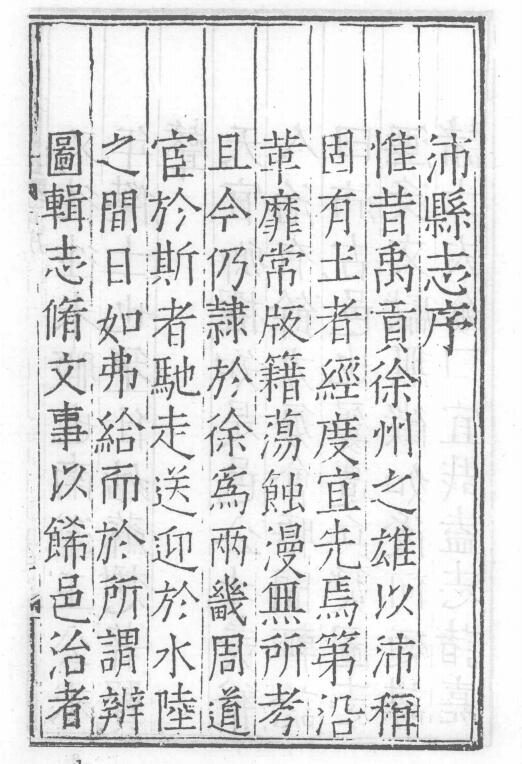 沛縣志序
惟昔禹貢徐州之雄以沛稱
固有土者經度宜先焉第沿
革靡常版籍蕩蝕漫無所考
且今仍隸於徐爲兩畿周道
宦於斯者馳走送迎於水陸
之間日如弗給而於所謂辨
圖輯志脩文事以餙邑治者